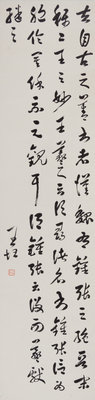 夫自古之善書者漢魏有鍾張之絕晉末
稱二王之妙王羲之云頃尋諸名書鍾張信為
絕倫其餘不足觀可謂鍾張云沒而羲獻
繼之